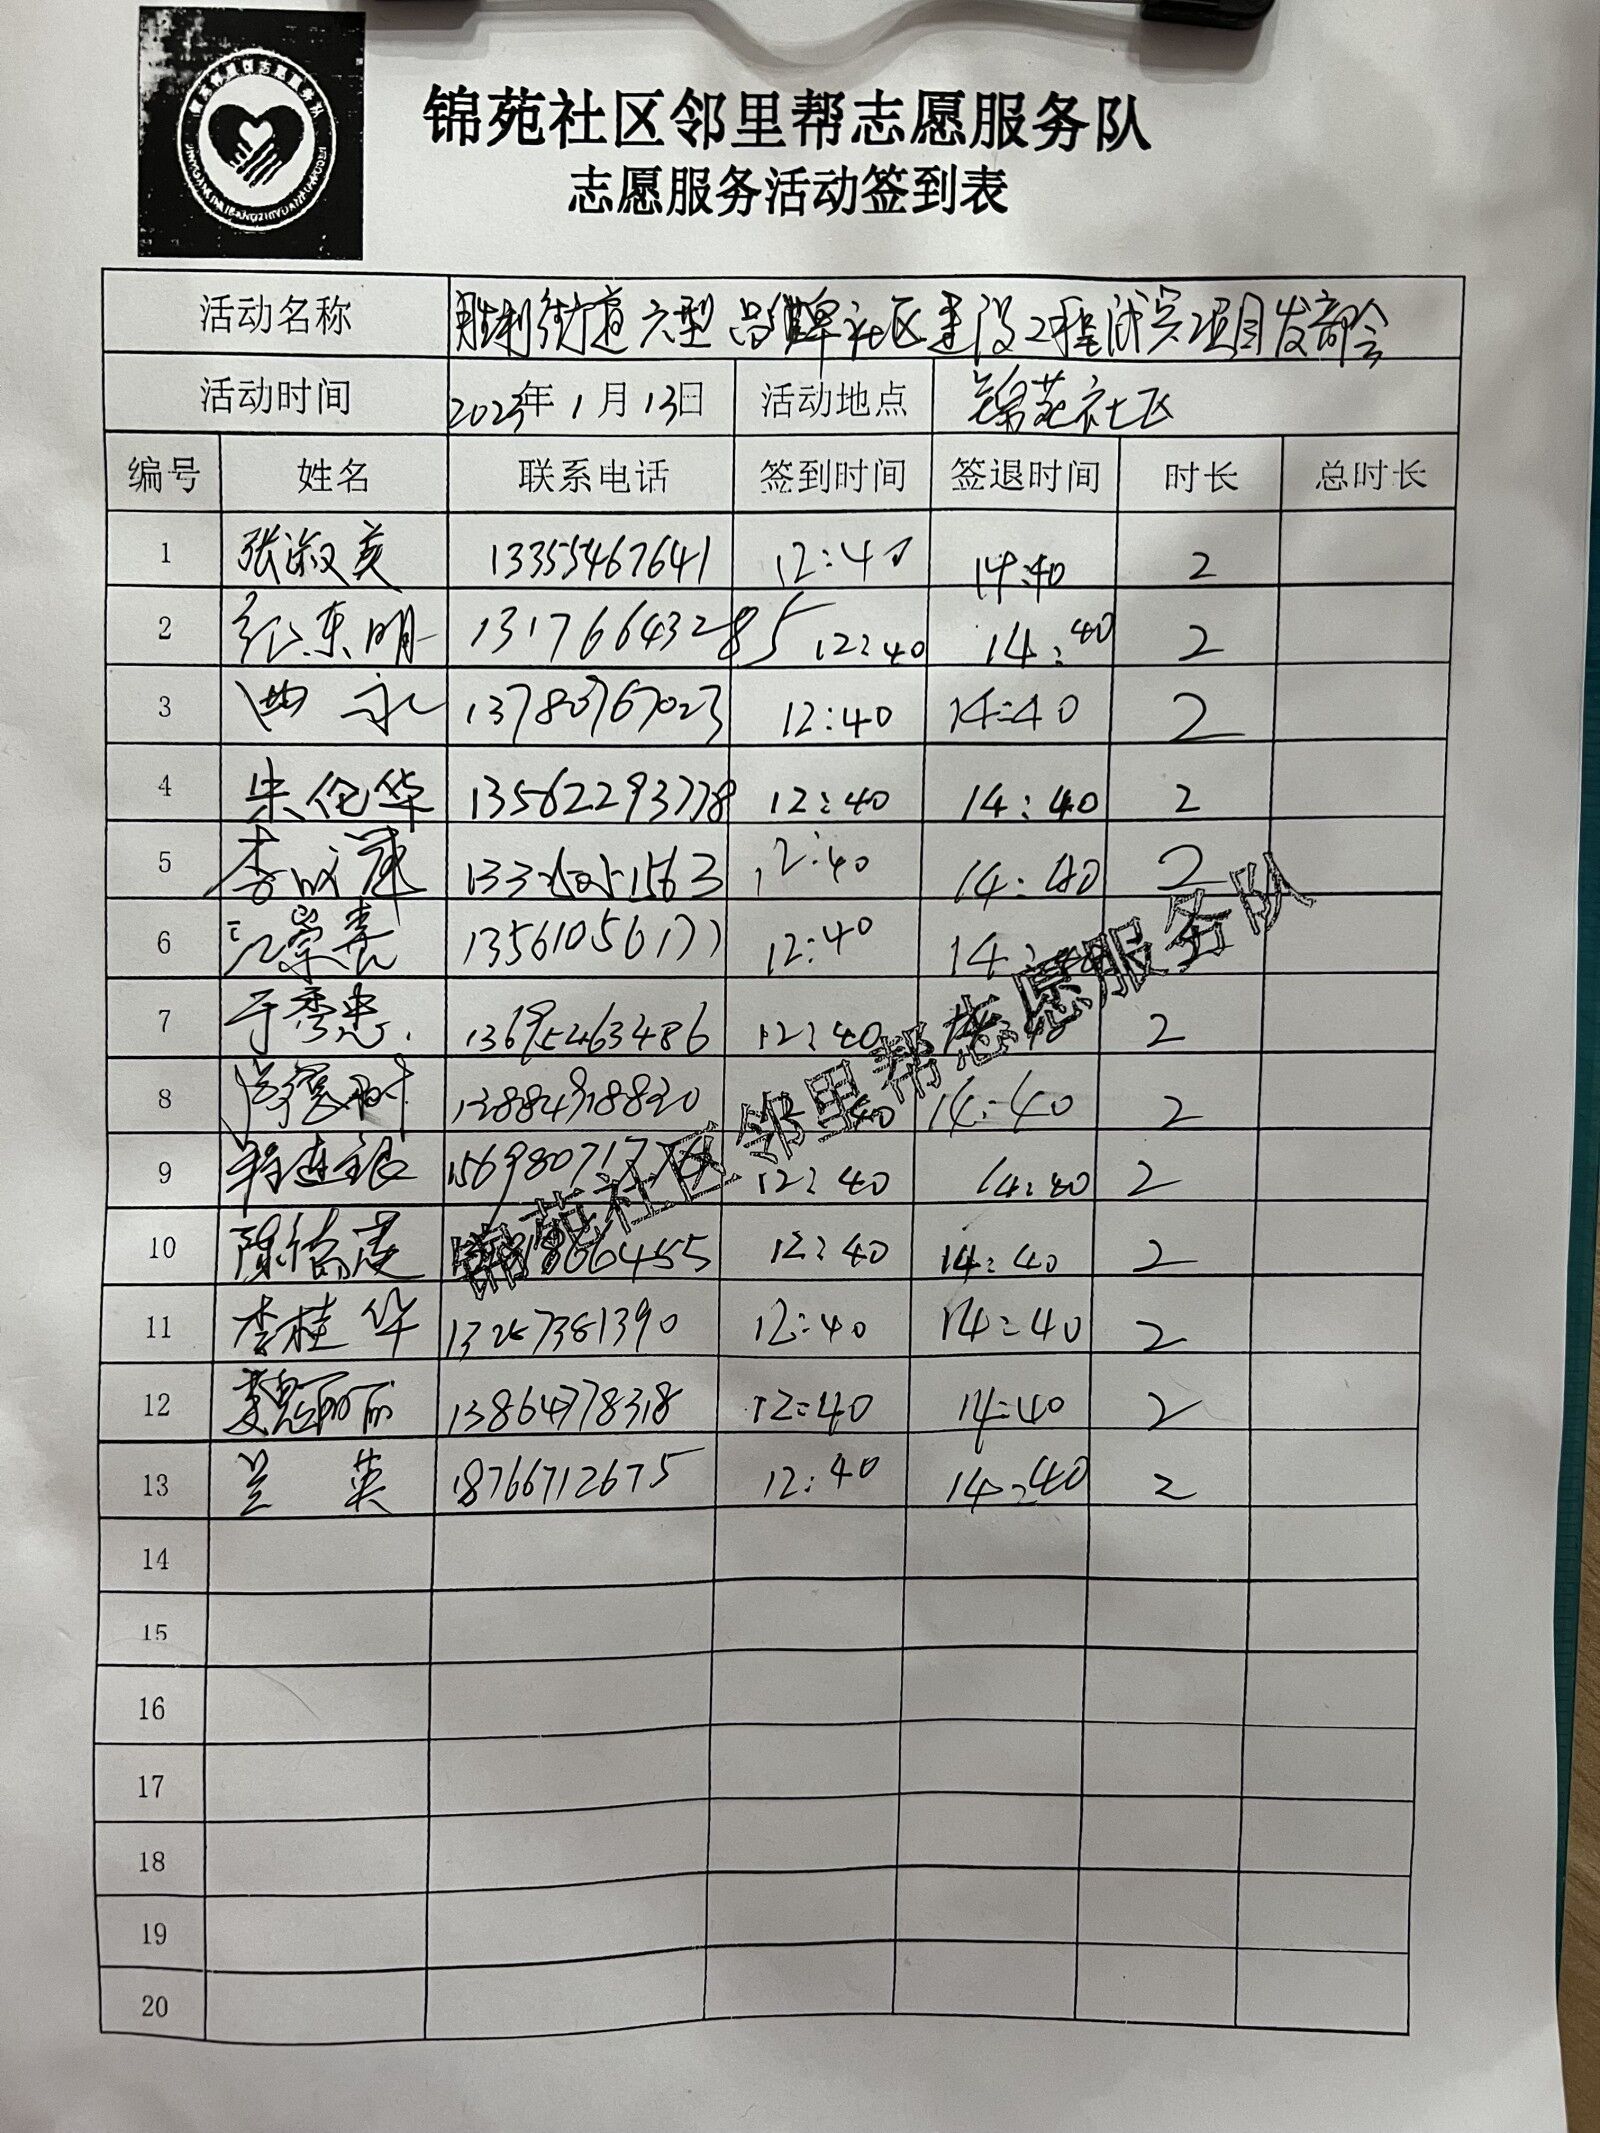 锦苑社区邻里帮志愿服务队
志愿服务活动签到表
活动名称 胜利街道六型品牌社区建设工程试点项目发布会
活动时间 2023年1月13日 活动地点 锦苑社区
编号 姓名 联系电话 签到时间 签退时间 时长 总时长
1 张淑英 13355467641 12:40 14:40 2
2 东明 13176643285 12:40 14:40 2
3 永 13780767023 12:40 14:40 2
4 朱伦华 13562293778 12:40 14:40 2
5 李 12:40 14:40 2
6 江崇春 13561056177 12:40 14:
7 于秀忠 13695463486 12:40 2
8 13884918820 40 14:40 2
9 程连银 12:40 14:40 2
10 陈 12:40 14:40 2
11 李桂华 12:40 14:40 2
12 魏丽丽 13864778318 12:40 14:40 2
13 兰英 18766712675 12:40 14:40 2
14
15
16
17
18
19
20
锦苑社区邻里帮志愿服务队